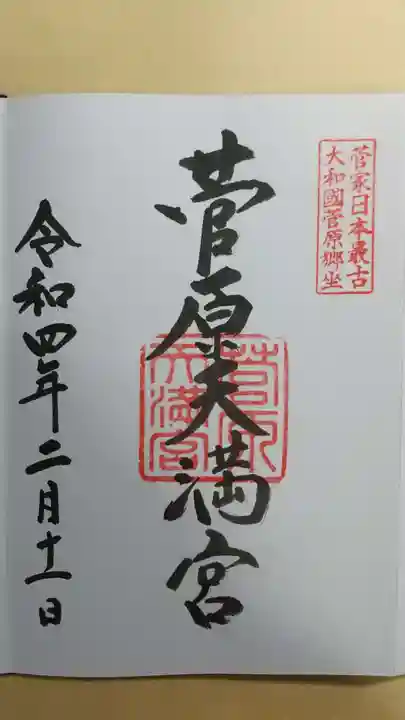 菅家日本最古
大和國菅原郷坐
菅原天満宮
菅原天満宮
令和四年二月十一日